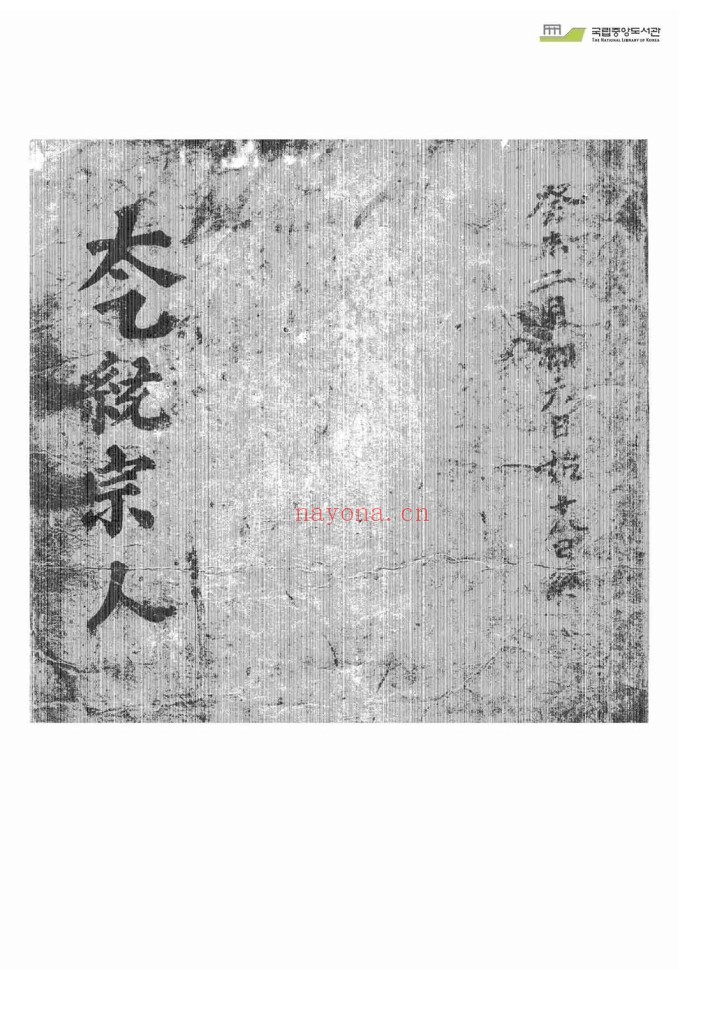 국립중앙도서관
THE NATIONAL LIBRARY OF KOREA
癸未二月 六日始十八日
太乙統宗人
nayona.cn